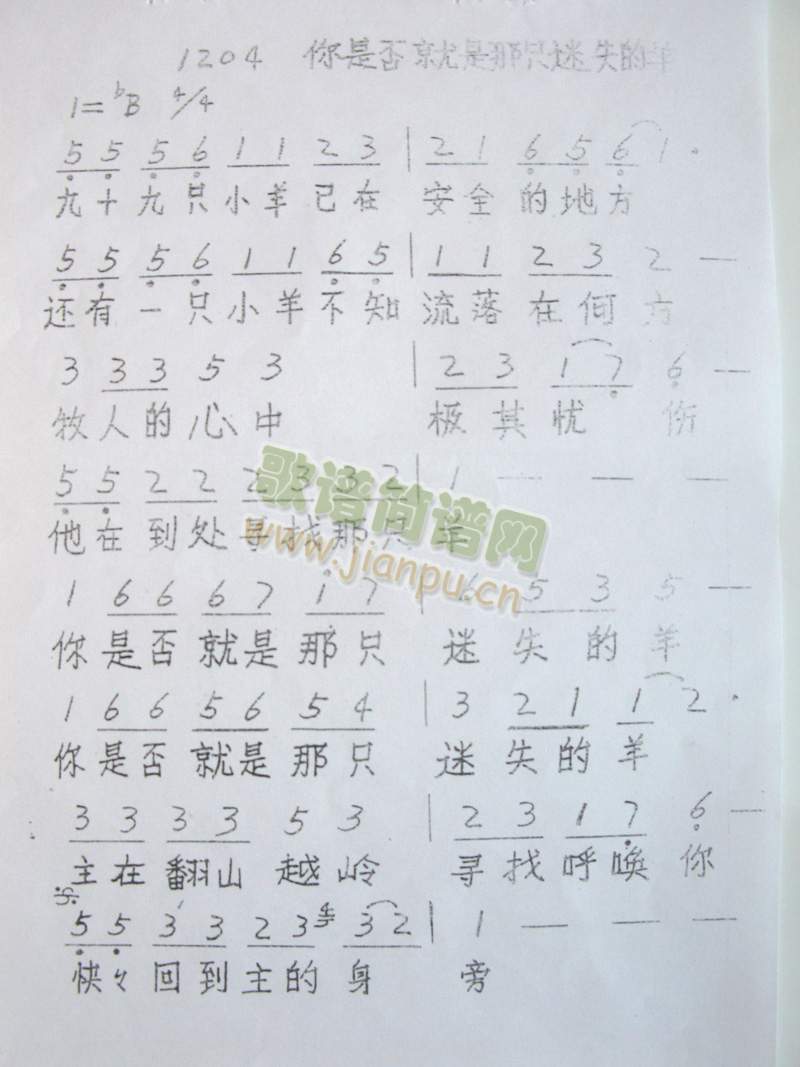 1204 你是否就是那只迷失的羊
1=♭B 4/4
5 5 5 6 1 1 2 3 | 2 1 6 5 6 1 ·
九十九只小羊已在 安全的地方
5 5 5 6 1 1 6 5 | 1 1 2 3 2 —
还有一只小羊不知 流落在何方
3 3 3 5 3 | 2 3 1 7 6 —
牧人的心中 极其忧 伤
5 5 2 2 2 3 3 2 | 1 — — —
他在到处寻找那只 羊
歌谱简谱网
www.jianpu.cn
1 6 6 6 7 1 7 | 6 5 3 5 —
你是否就是那只 迷失的羊
1 6 6 5 6 5 4 | 3 2 1 1 2 ·
你是否就是那只 迷失的羊
3 3 3 3 5 3 | 2 3 1 7 6 —
主在翻山越岭 寻找呼唤你
5 5 3 3 2 3 3 2 | 1 — — —
快々回到主的身 旁